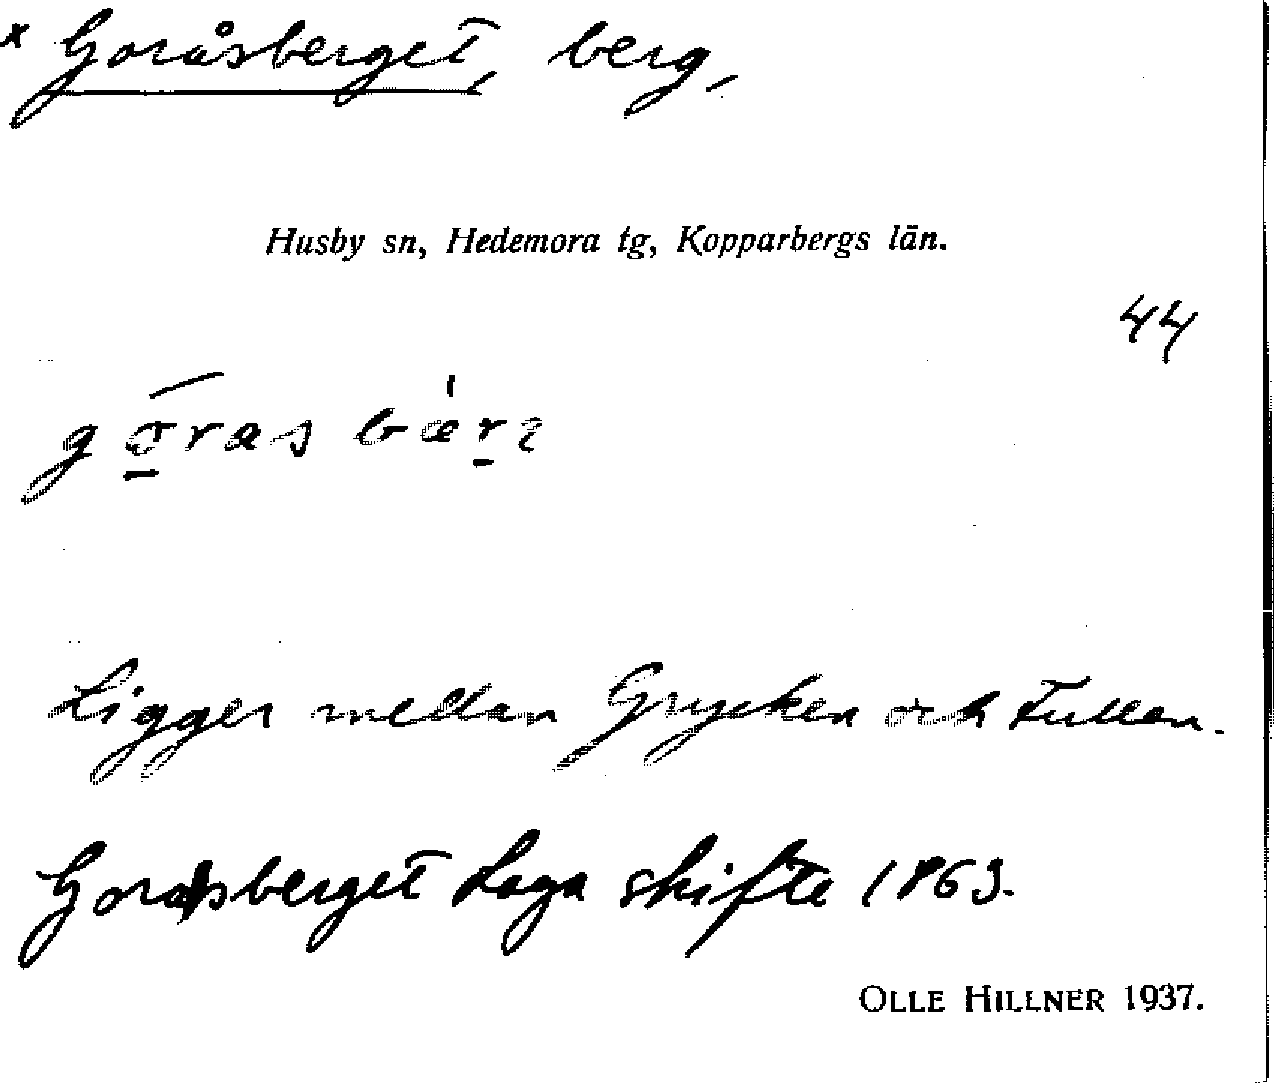 x Goråsberget, berg,
Husby sn, Hedemora tg, Kopparbergs län.
44
Ligger mellan Grycken och Fullen.
Gorasberget Laga skifte 1863.
OLLE HILLNER 1937.